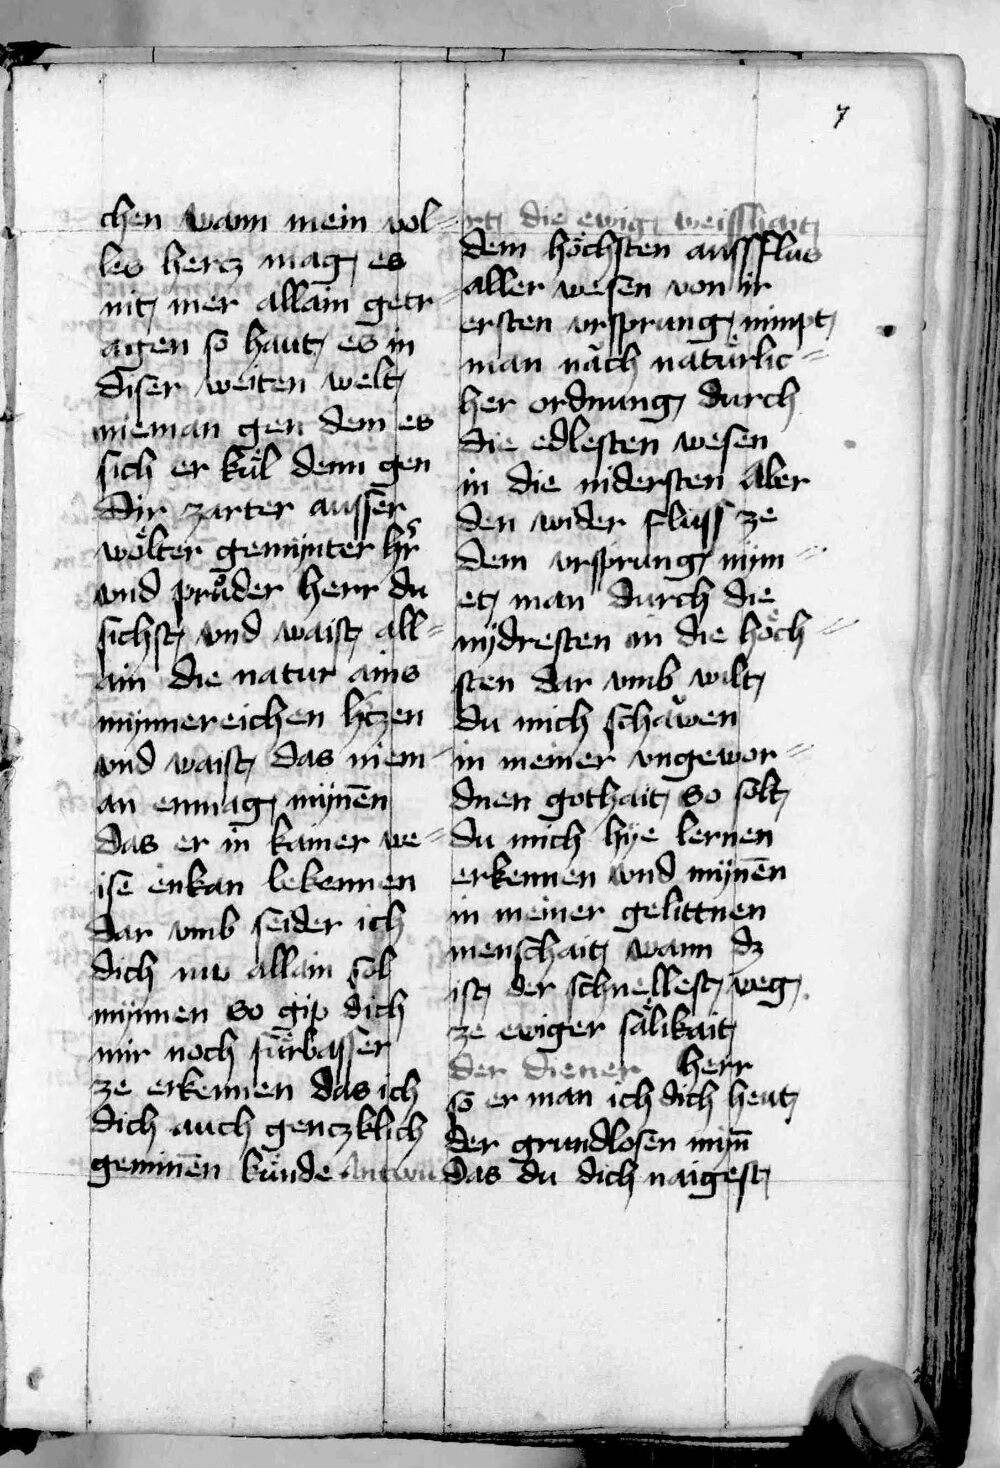 7
chen wann mein vol=
les hercz mag es
nit mer allain getr=
agen so haut es in
diser weiten welt
nieman gen dem es
sich er kuͤl denn gen
dir zarter ausser
woͤlter gemynter hr̄
vnd pruͦder herr du
sichst vnd waist all=
ain die natur ains
mynnereichen htzen
vnd waist das niem=
an enmag mynen̄
das er in kainer we=
ise enkan bekennen
dar vmb seider ich
dich nw allain sol
mynnen so gip dich
mir noch fuͤrbasser
ze erkennen das ich
dich auch genczklich
geminen̄ kuͤnde Antwu
rt die ewig weisshait
dem hoͤchsten aussflus
aller wesen von ir
ersten vrsprung nimpt
man nāch natuͤrlic=
her ordnung durch
die edlesten wesen
in die nidersten Aber
den wider fluss ze
dem vrsprung nim=
et man durch die
nydresten in die hoͤch=
sten dar vmb wilt
du mich schaͧwen
in meiner vngewor=
dnen gothait so solt
du mich hye lernen
erkennen vnd mynen̄
in meiner gelittnen
menschait wann dz
ist der schnellest weg
ze ewiger saͤlikait
der diener Herr
so er man ich dich heut
der grundlosen myn̄
das du dich naigest